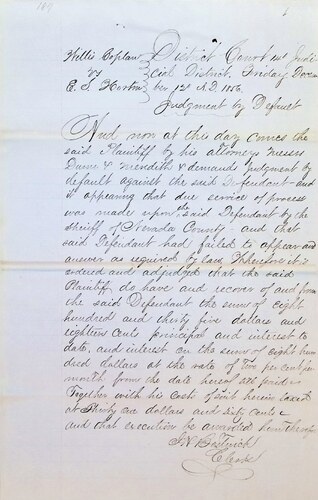 184
Willis Coplan District Court 1st Judi
vs cial District, Friday Decem
E. S. Horton ber 12th A.D. 1856
Judgment by Default
And now at this day comes the
said Plaintiff by his attorneys Messrs
Dunn & Meredith & demands judgment by
default against the said Defendant and
it appearing that due service of process
was made upon the said Defendant by the
sheriff of Nevada County and that
said Defendant had failed to appear and
answer as required by law Therefore it is
ordered and adjudged that the said
Plaintiff do have and recover of and from
the said Defendant the sum of eight
hundred and thirty five dollars and
eighteen cents principal and interest to
date, and interest on the sum of eight hun
dred dollars at the rate of Two per cent per
month from the date hereof till paid
Together with his costs of suit herein taxed
at Thirty dollars and sixty cents
and that execution be awarded
Clerk